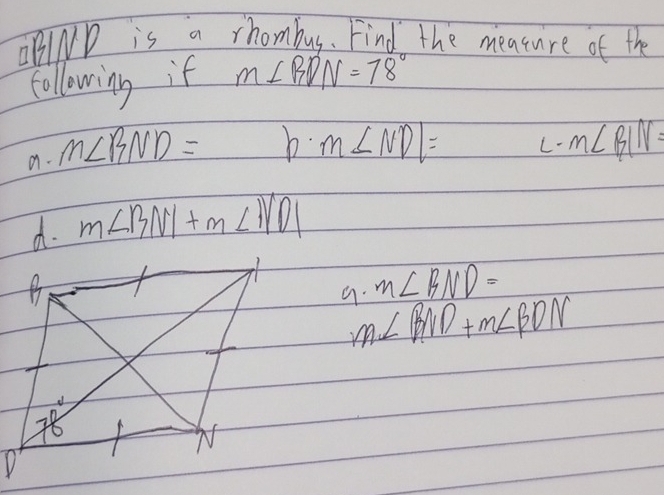 ▱BIND is a rhombus. Find the measure of the
following if m∠BDN = 78°
a. m∠BND = b. m∠NDI = c. m∠BIN =
d. m∠BNI + m∠NDI
B I
a. m∠BND =
m∠BND + m∠BDN
78°
D N